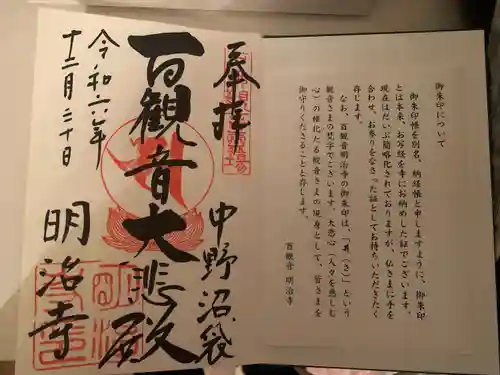 御朱印について
御朱印帳を別名、納経帳と申しますように、御朱印
とは本来、お写経を寺にお納めした証でございます。
現在はだいぶ簡略化されておりますが、仏さまに手を
合わせ、お参りをなさった証としてお持ちいただきたく
存じます。
なお、百観音明治寺の御朱印は、「サ(さ)」という
観音さまの梵字でございます。大悲心(人々を慈しむ
心)の権化たる観音さまの現身として、皆さまを
御守りくださることと存じます。
百観音 明治寺
奉拝
中野沼袋
百観音大悲殿
令和六年
十二月三十日
明治寺